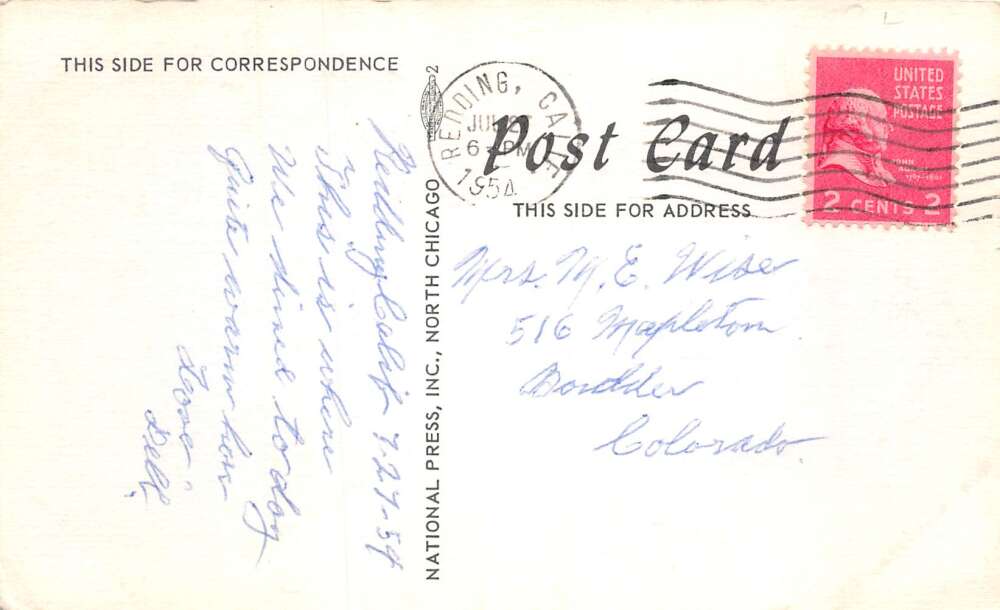 THIS SIDE FOR CORRESPONDENCE
Redding Calif 7-27-54
This is where
We dined today
Quite warm here
Love
Dell
NATIONAL PRESS, INC., NORTH CHICAGO
2
REDDING, CALIF.
JUL 27
6 PM
1954
Post Card
THIS SIDE FOR ADDRESS
UNITED
STATES
POSTAGE
JOHN
2 CENTS 2
Mrs. M. E. Wise
516 Mapleton
Boulder
Colorado.